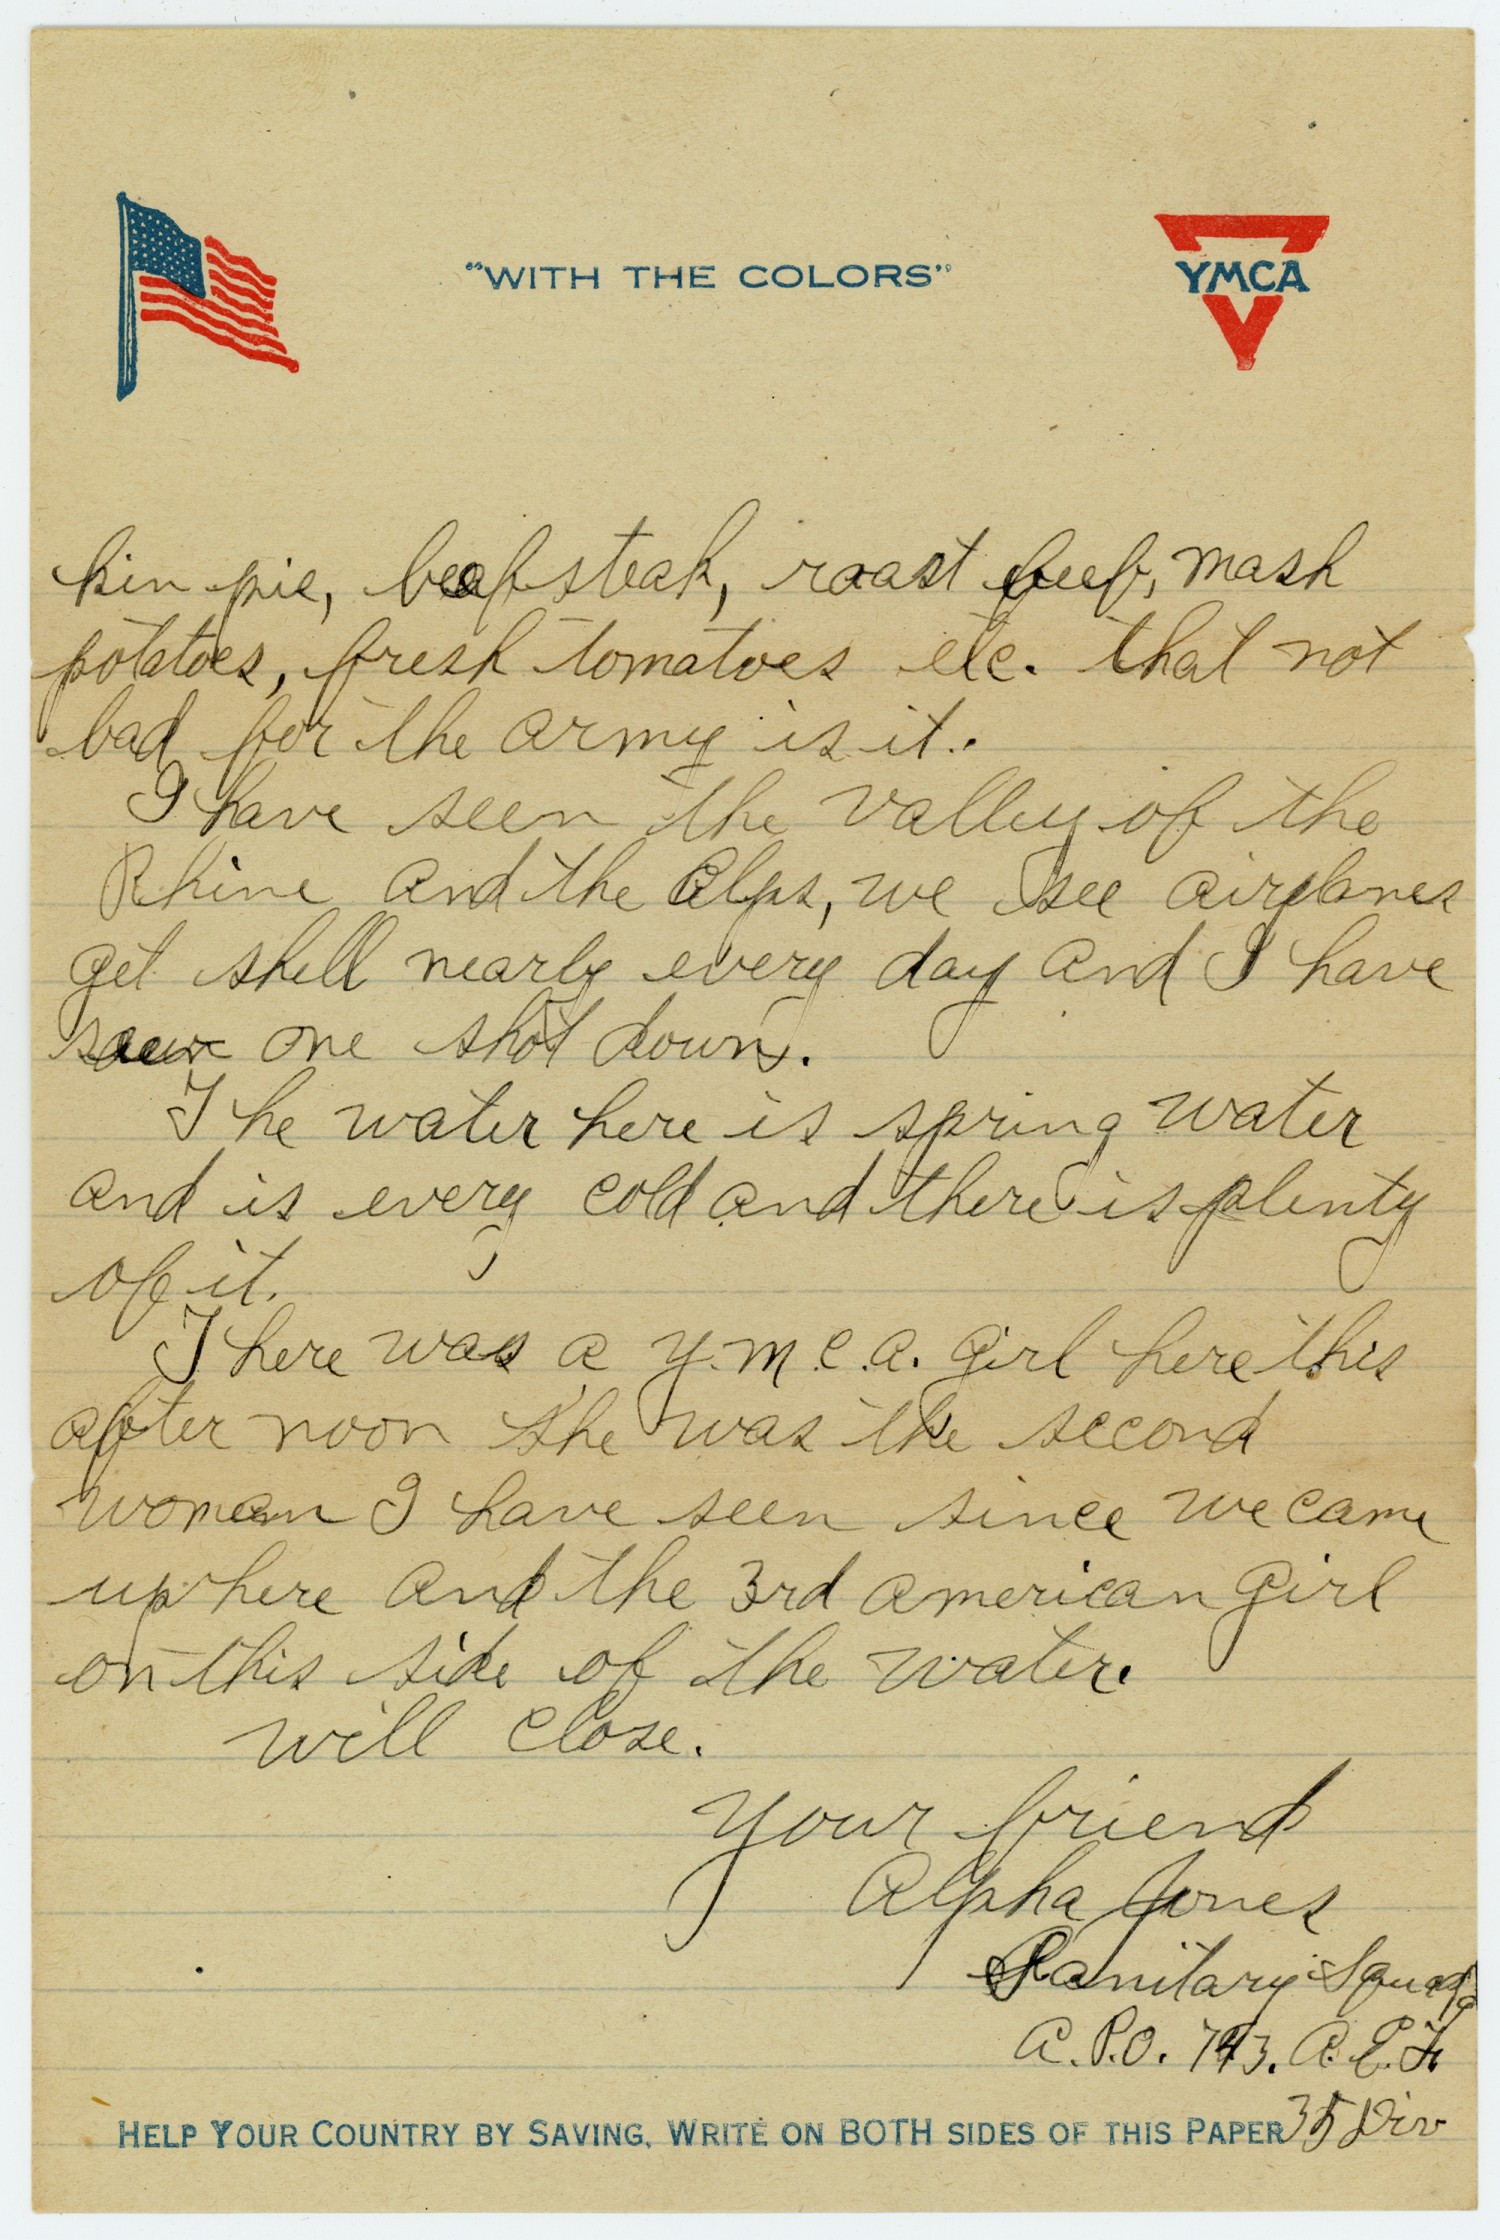 "WITH THE COLORS"
YMCA
kin pie, beafsteak, roast beef, mash
potatoes, fresh tomatoes etc. that not
bad for the army is it.
I have seen the valley of the
Rhine and the Alps, we see airplanes
get shell nearly every day and I have
one shot down.
The water here is spring water
and is every cold and there is plenty
of it.
There was a Y.M.C.A. girl here this
after noon she was the second
woman I have seen since we came
up here and the 3rd american girl
on this side of the water.
will close.
Your friend
Alpha Jones
Sanitary Squad
A.P.O. 743. A.E.F.
35 Div
HELP YOUR COUNTRY BY SAVING. WRITE ON BOTH SIDES OF THIS PAPER